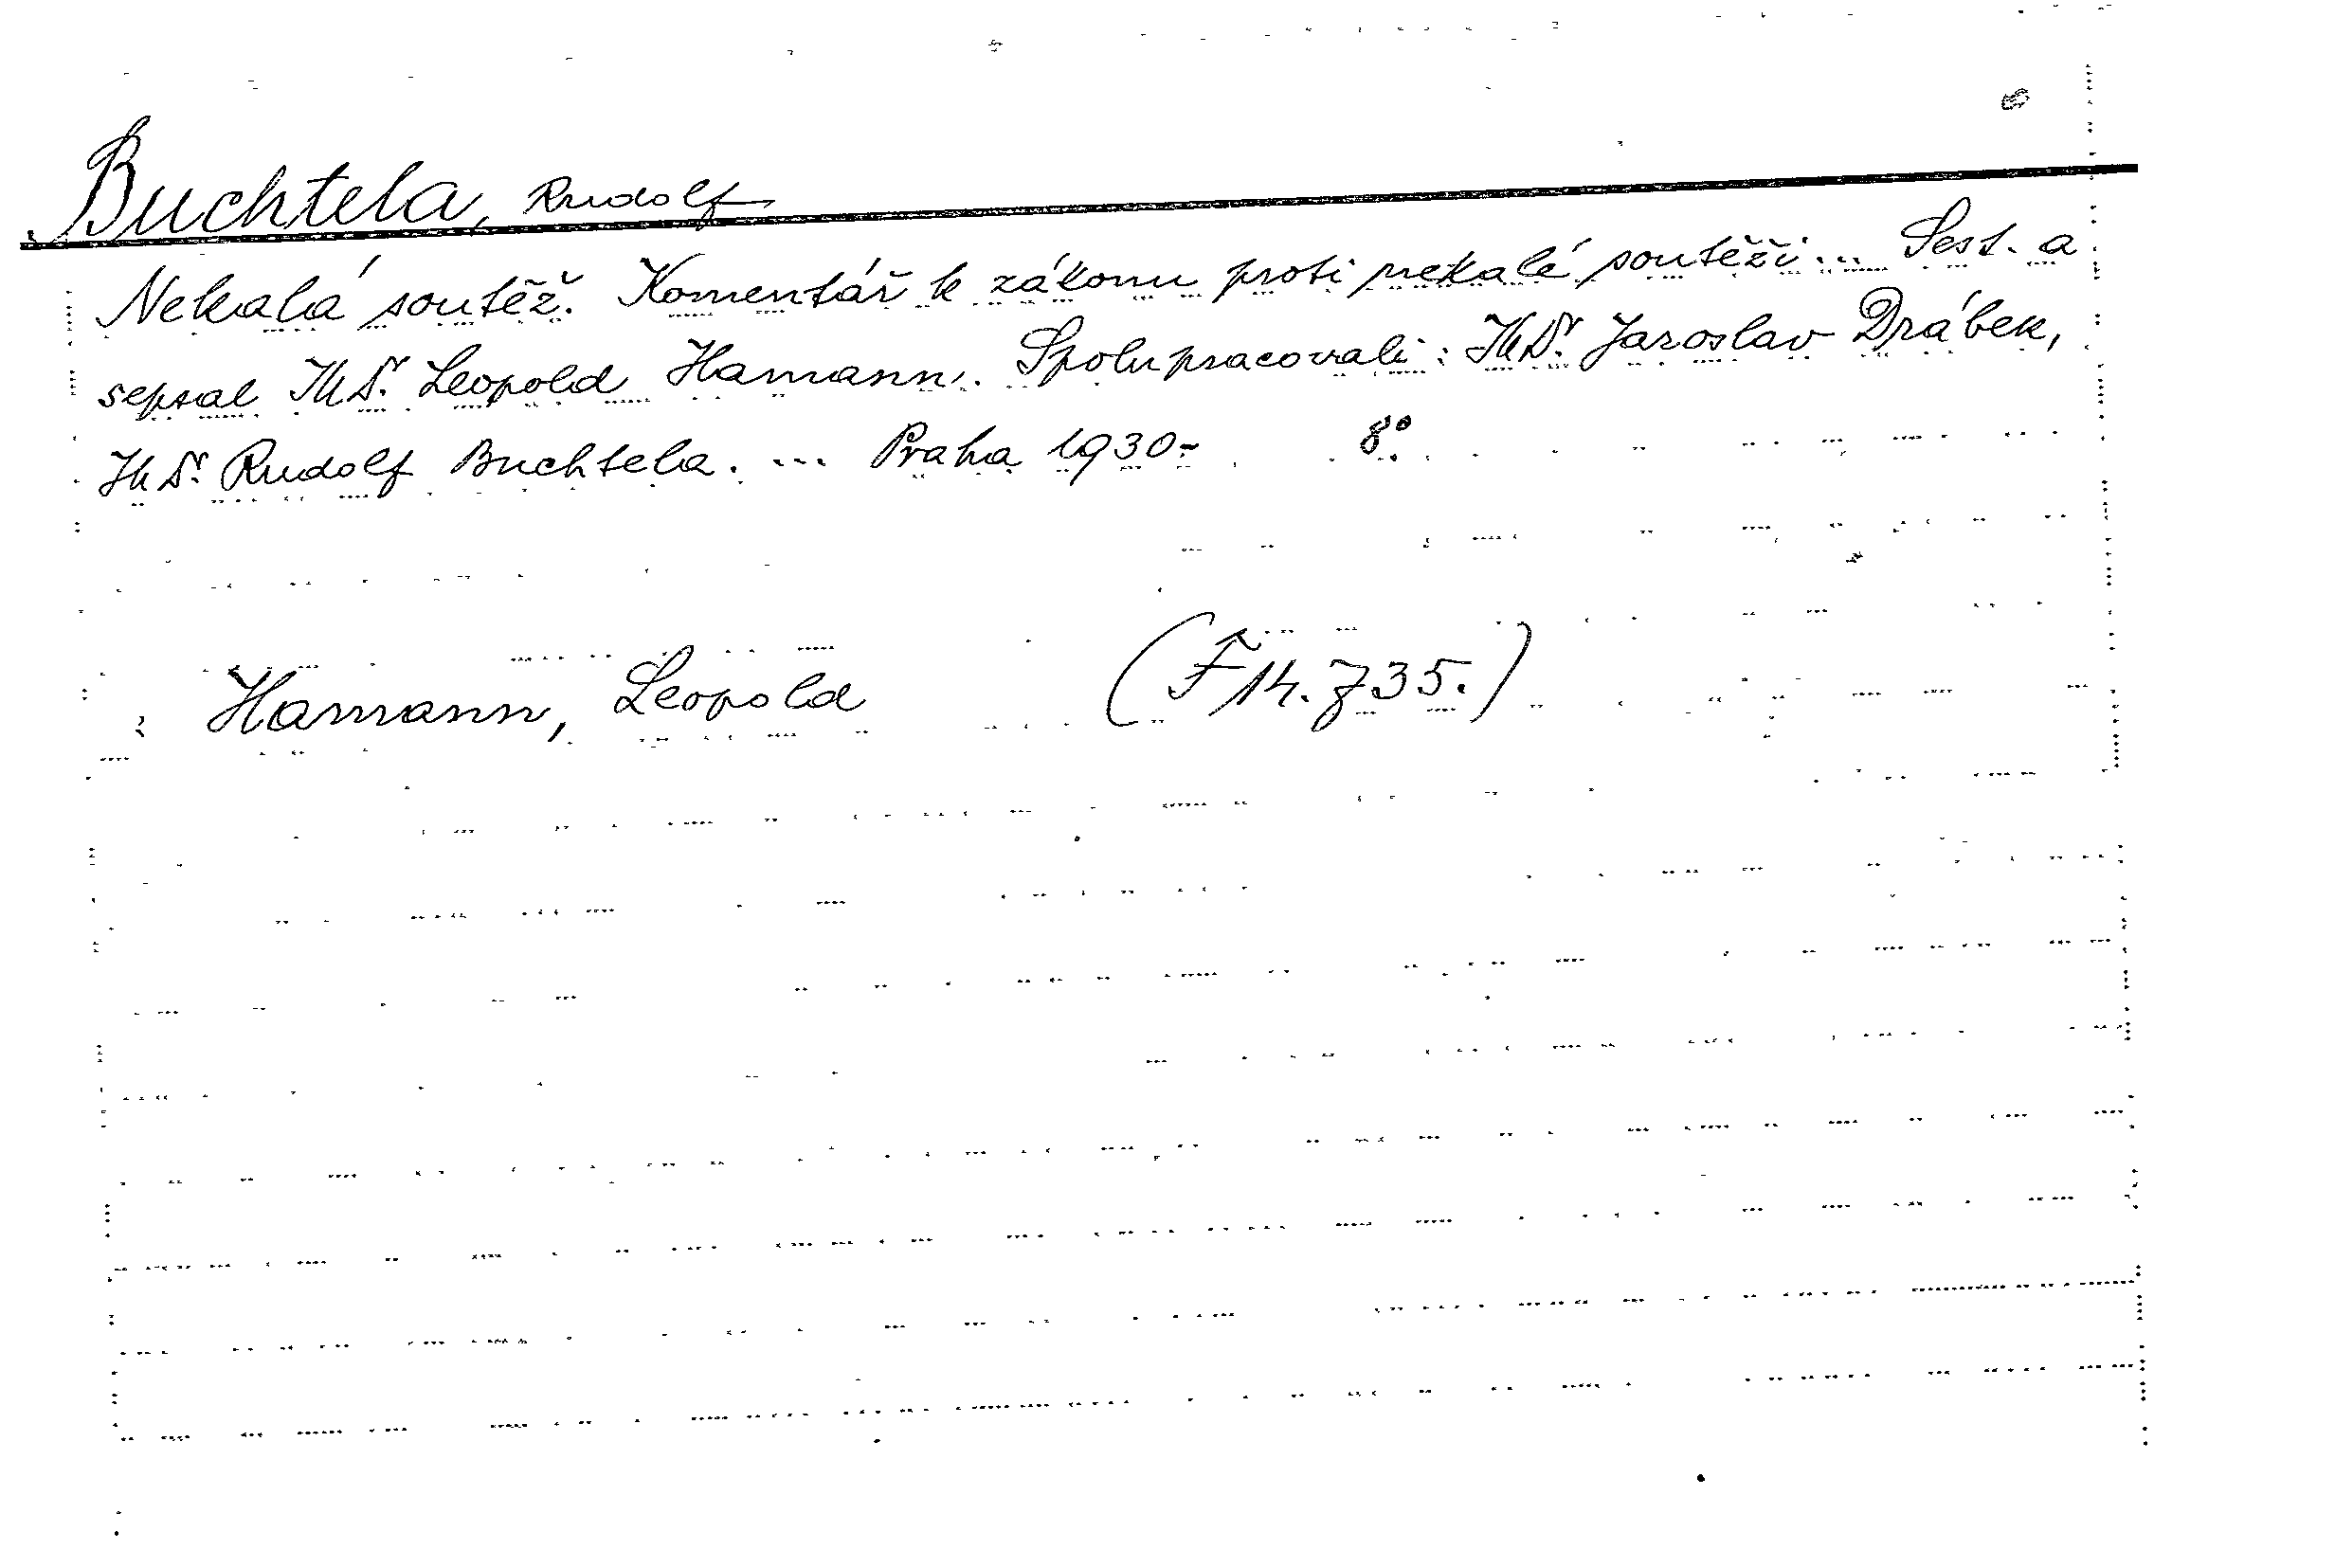 Buchtela, Rudolf
Nekalá soutěž. Komentář k zákonu proti nekalé soutěži... Sest. a
sepsal JUDr. Leopold Hamann. Spolupracovali: JUDr. Jaroslav Drábek,
JUDr. Rudolf Buchtela. ... Praha 1930- 8°.
Hamann, Leopold (F 14.735.)